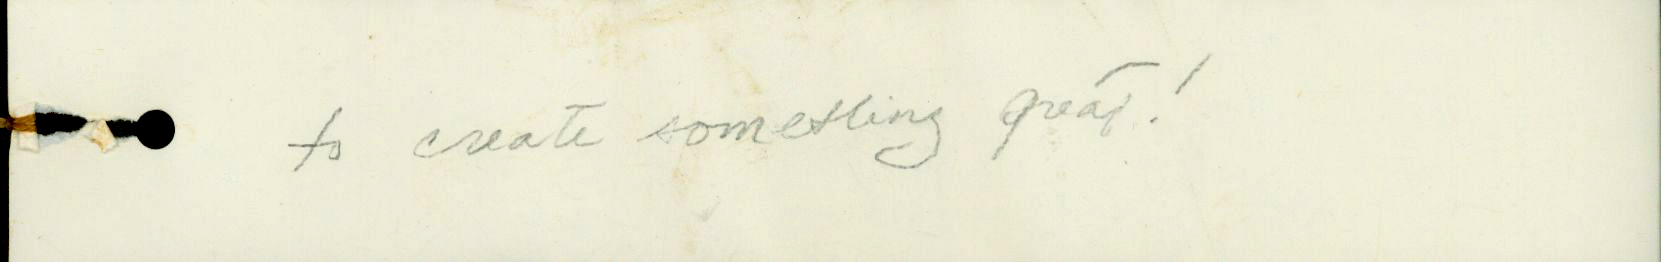 to create something great!